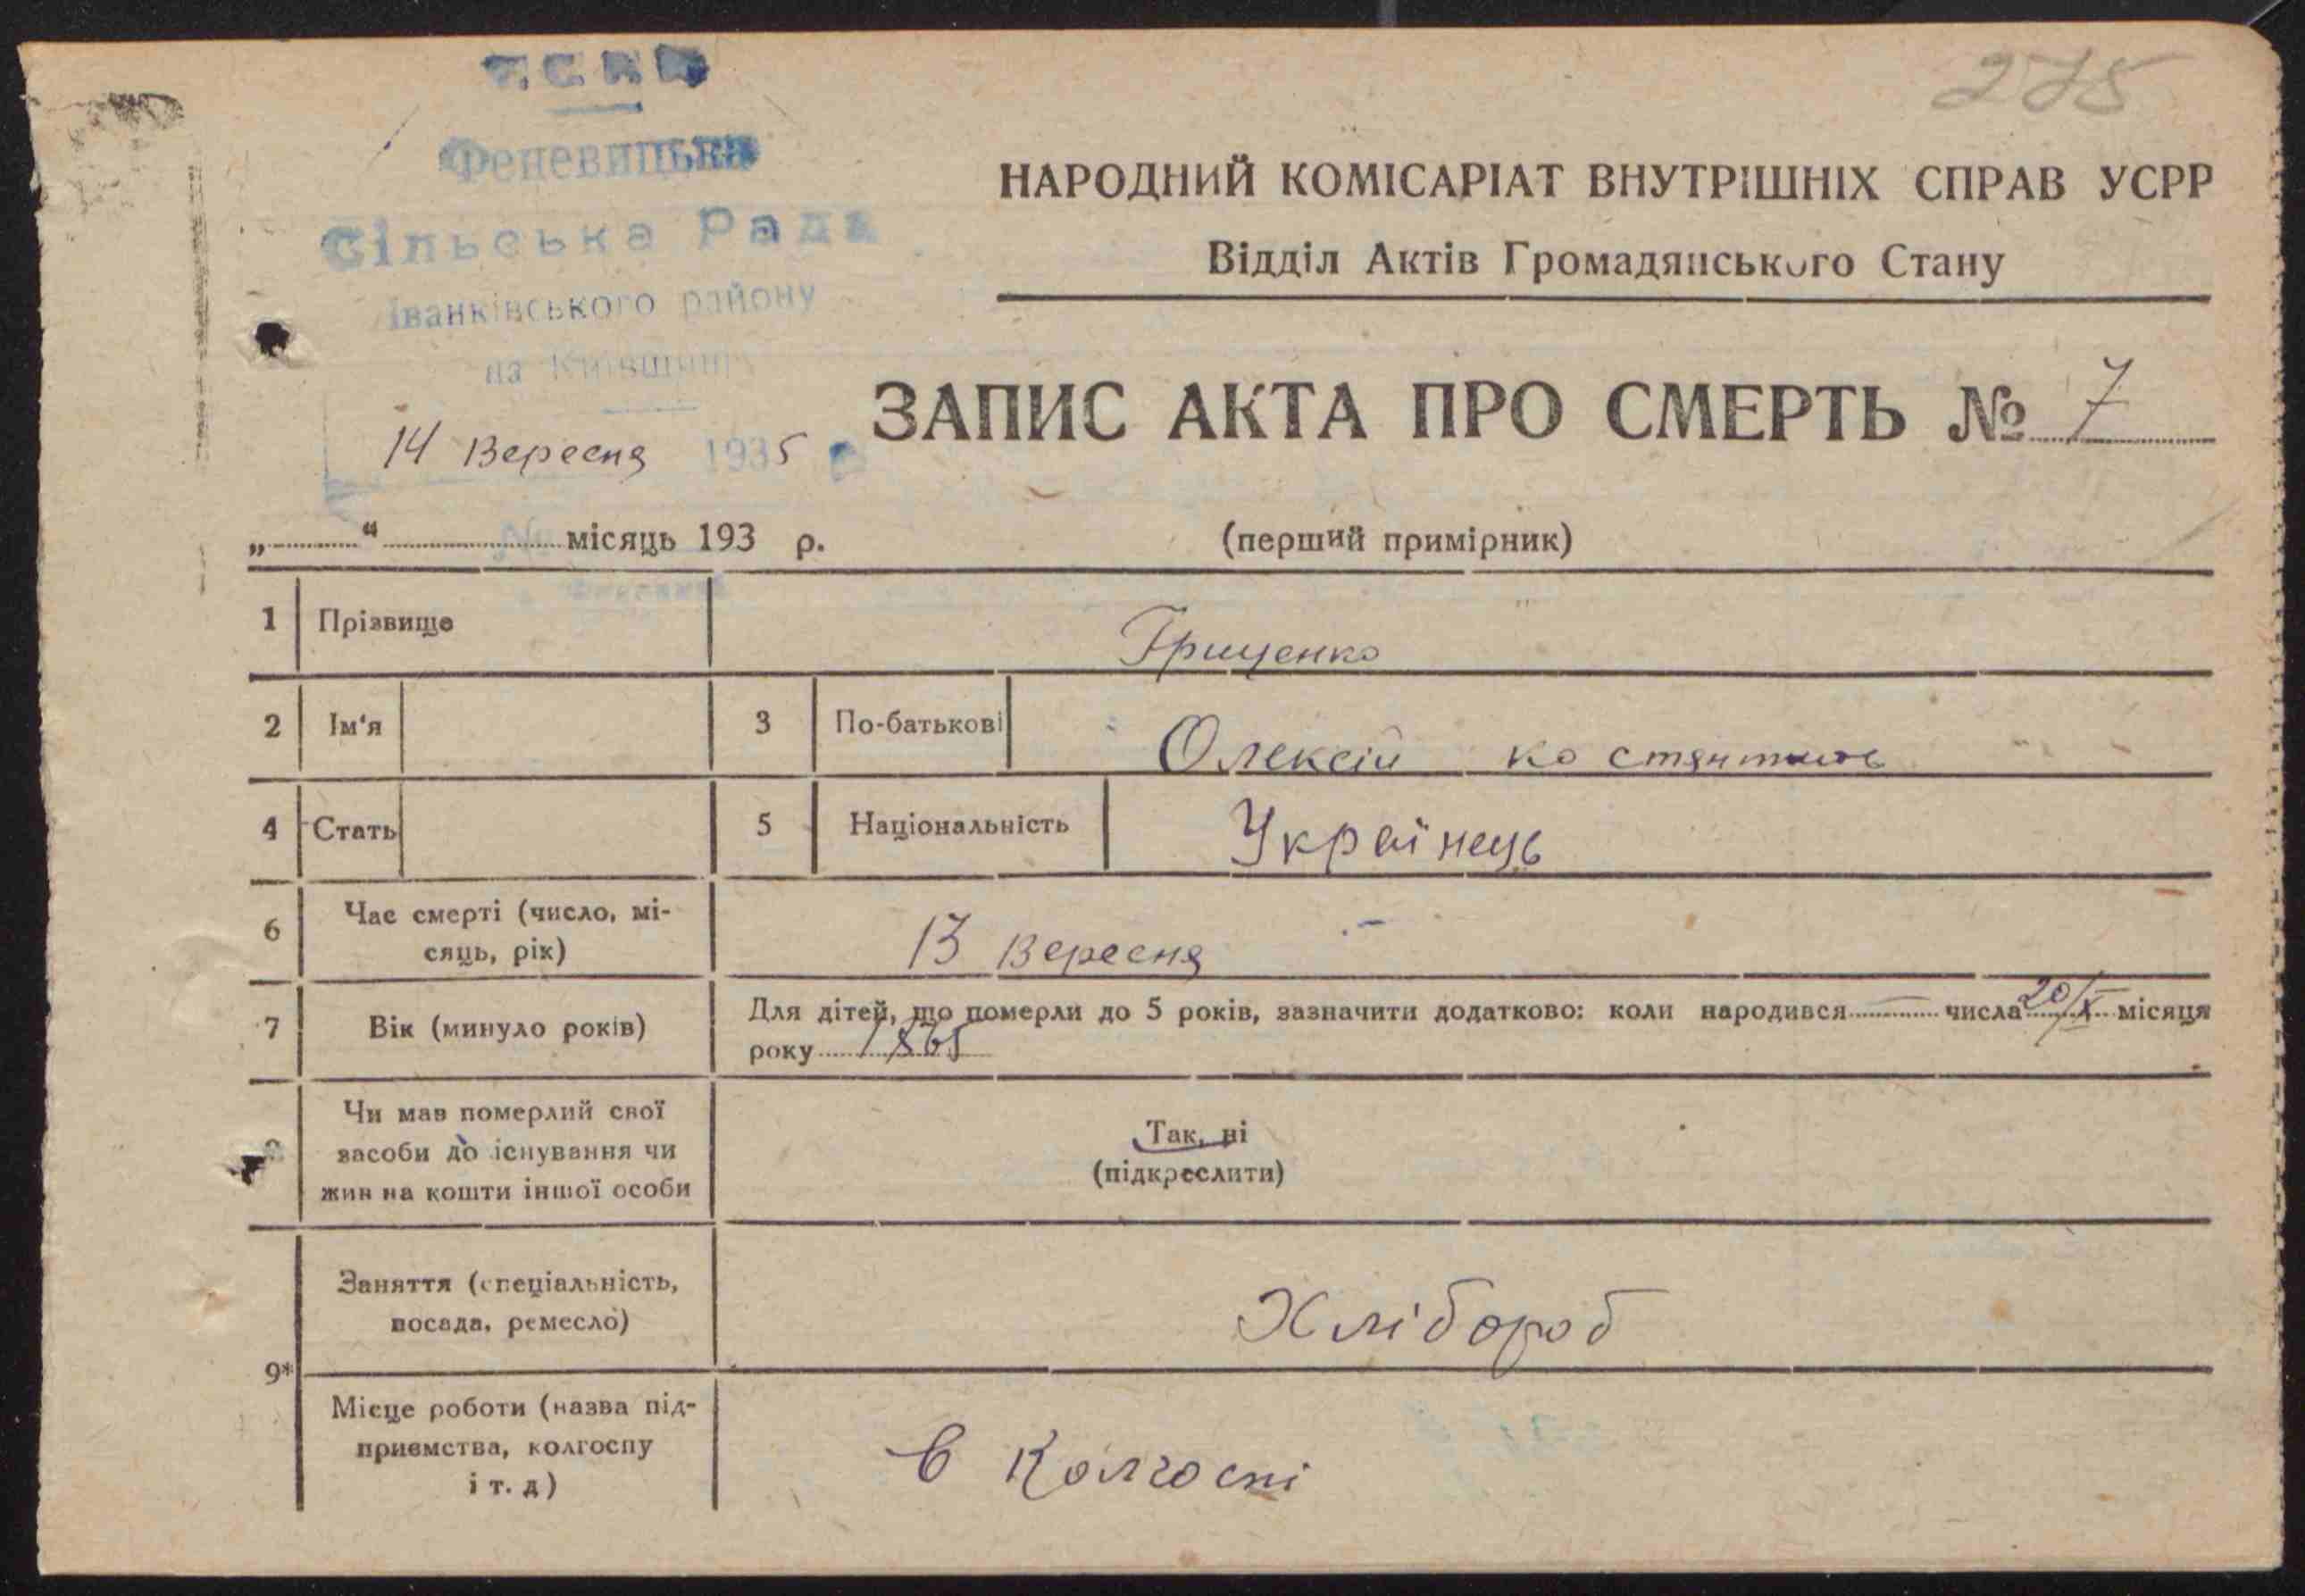 275
УСРР
Феневицька
Сільська Рада
Іванківського району
на Київщині
14 Вересня 1935 р
НАРОДНИЙ КОМІСАРІАТ ВНУТРІШНІХ СПРАВ УСРР
Відділ Актів Громадянського Стану
ЗАПИС АКТА ПРО СМЕРТЬ № 7
„ “ місяць 193 р.
(перший примірник)
1 Прізвище Грищенко
2 Ім'я 3 По-батькові Олексій
4 Стать 5 Національність Українець
6 Час смерті (число, мі-
сяць, рік)
13 Вересня
7 Вік (минуло років)
Для дітей, що померли до 5 років, зазначити додатково: коли народився — числа 20/X місяця
року 1865
8 Чи мав померлий свої
засоби до існування чи
жив на кошти іншої особи
Так, ні
(підкреслити)
9*
Заняття (спеціальність,
посада, ремесло)
Хлібороб
Місце роботи (назва під-
приємства, колгоспу
і т. д)
в Колгоспі